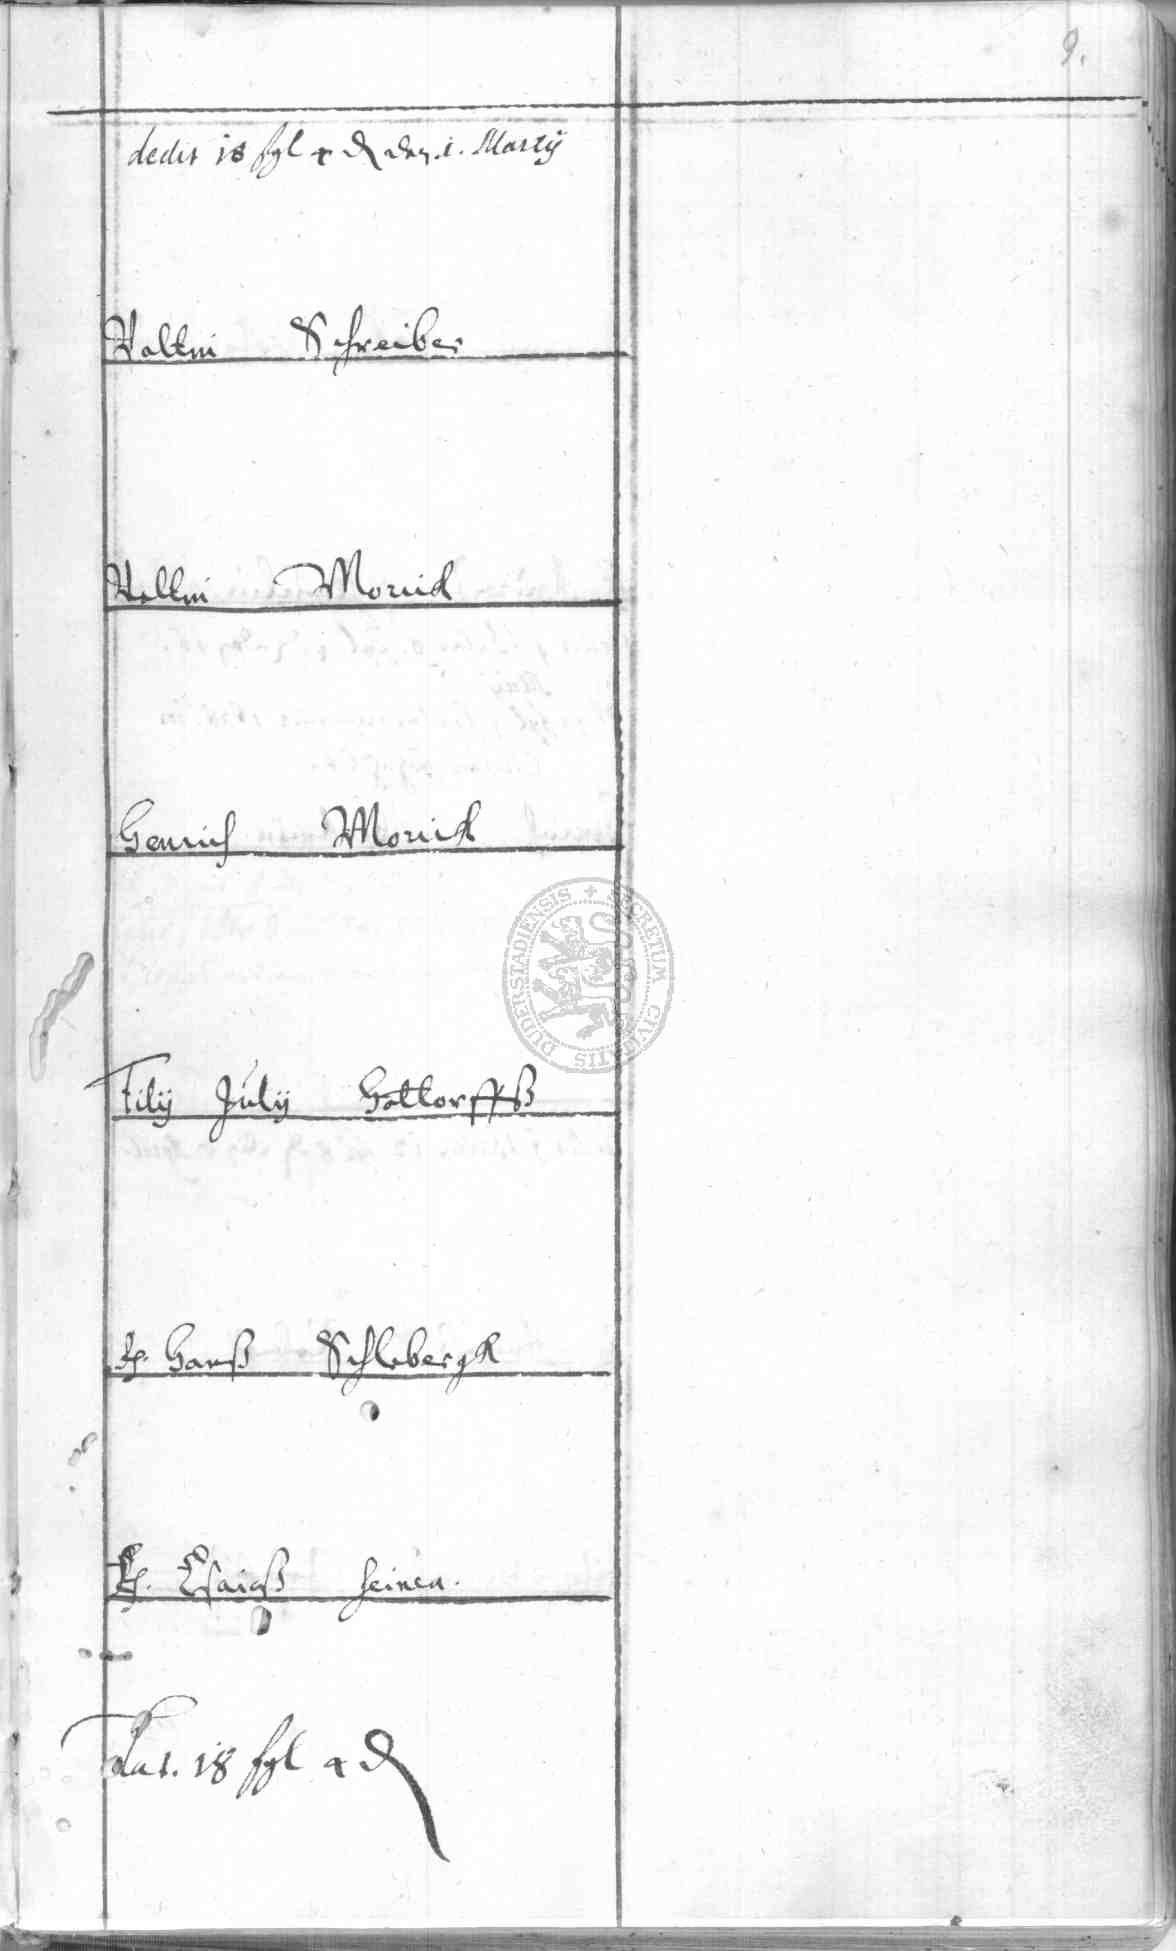 9.
dedit 18 ßgl 4 ₰ den 1. Martij
Valtin Schreiber
Valtin Morick
Henrich Morick
Filij Julij Hottorffß
H. Hanß Schleberg
H. Esaiaß heinen.
dat. 18 ßgl 4 ₰
DUDERSTADIENSIS + SECRETUM CIVITATIS